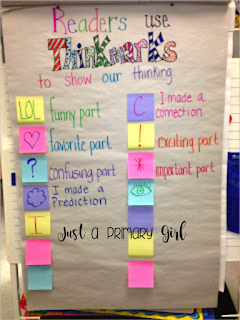 Readers use
Thinkmarks
to show our thinking
LOL funny part
♡ favorite part
? confusing part
I made a
Prediction
I
C I made a
connection
! exciting part
* important part
Just a Primary Girl